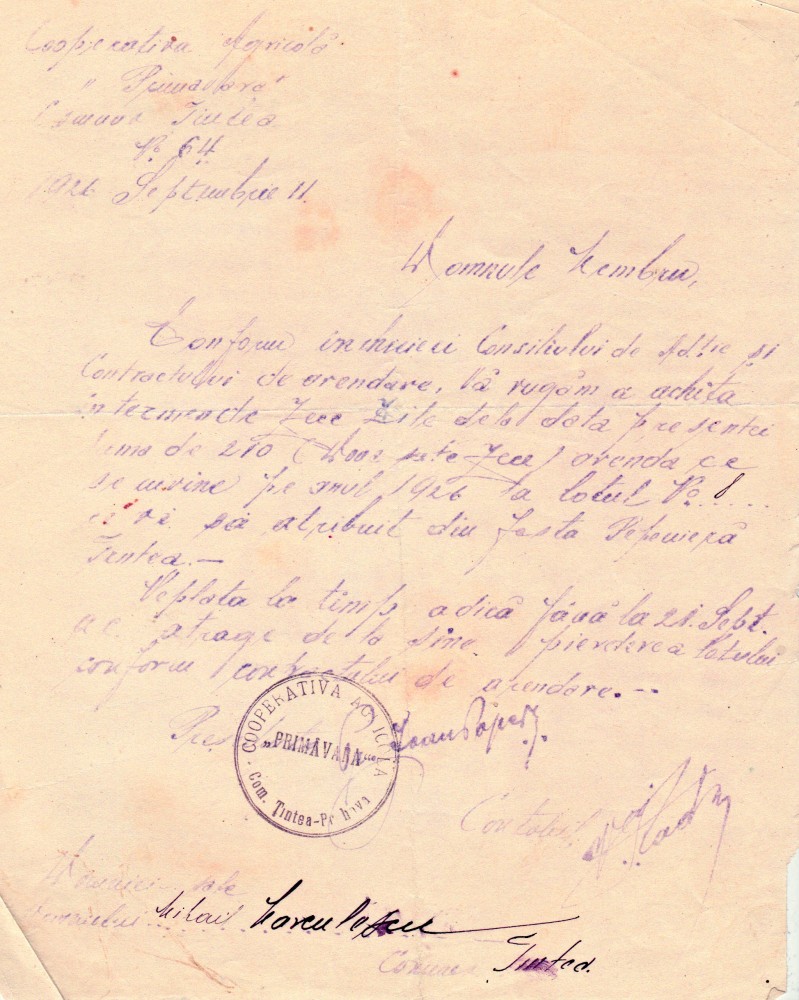 Cooperativa Agricolă
"Primavara"
Comuna Tintea
No 64
1926 Septembrie 11.
Domnule Membru,
Conform incheieri Consiliului de Ad-ție și
Contractului de arendare, Vă rugăm a achita
in termen de Zece Zile dela data prezentei
suma de 210 (Doua sute Zece) arenda ce
se cuvine pe anul 1926 la lotul No 8
ce vi să atribuit din fosta Pepinieră
Tintea.—
Neplata la timp adică până la 21. Sept.
a c. atrage de la sine pierderea lotului
conform contractului de arendare.—
Președinte Ioan Popes
COOPERATIVA AGRICOLA
„PRIMĂVARA"
Com. Țintea-Prahova
Contabil
Domniei sale
Domnului Mihail Marculescu
Comuna Tintea.